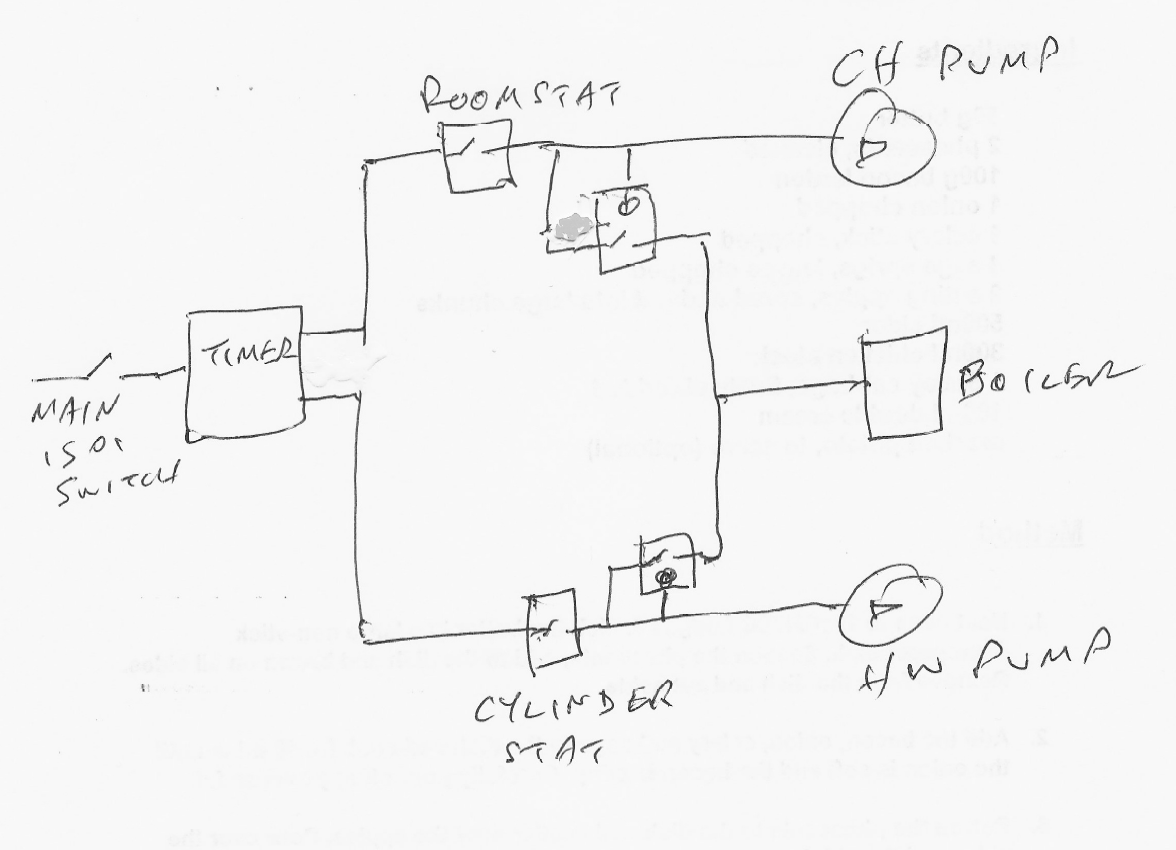 CH PUMP
ROOMSTAT
TIMER
MAIN
ISOl
SWITCH
BOILER
HW PUMP
CYLINDER
STAT